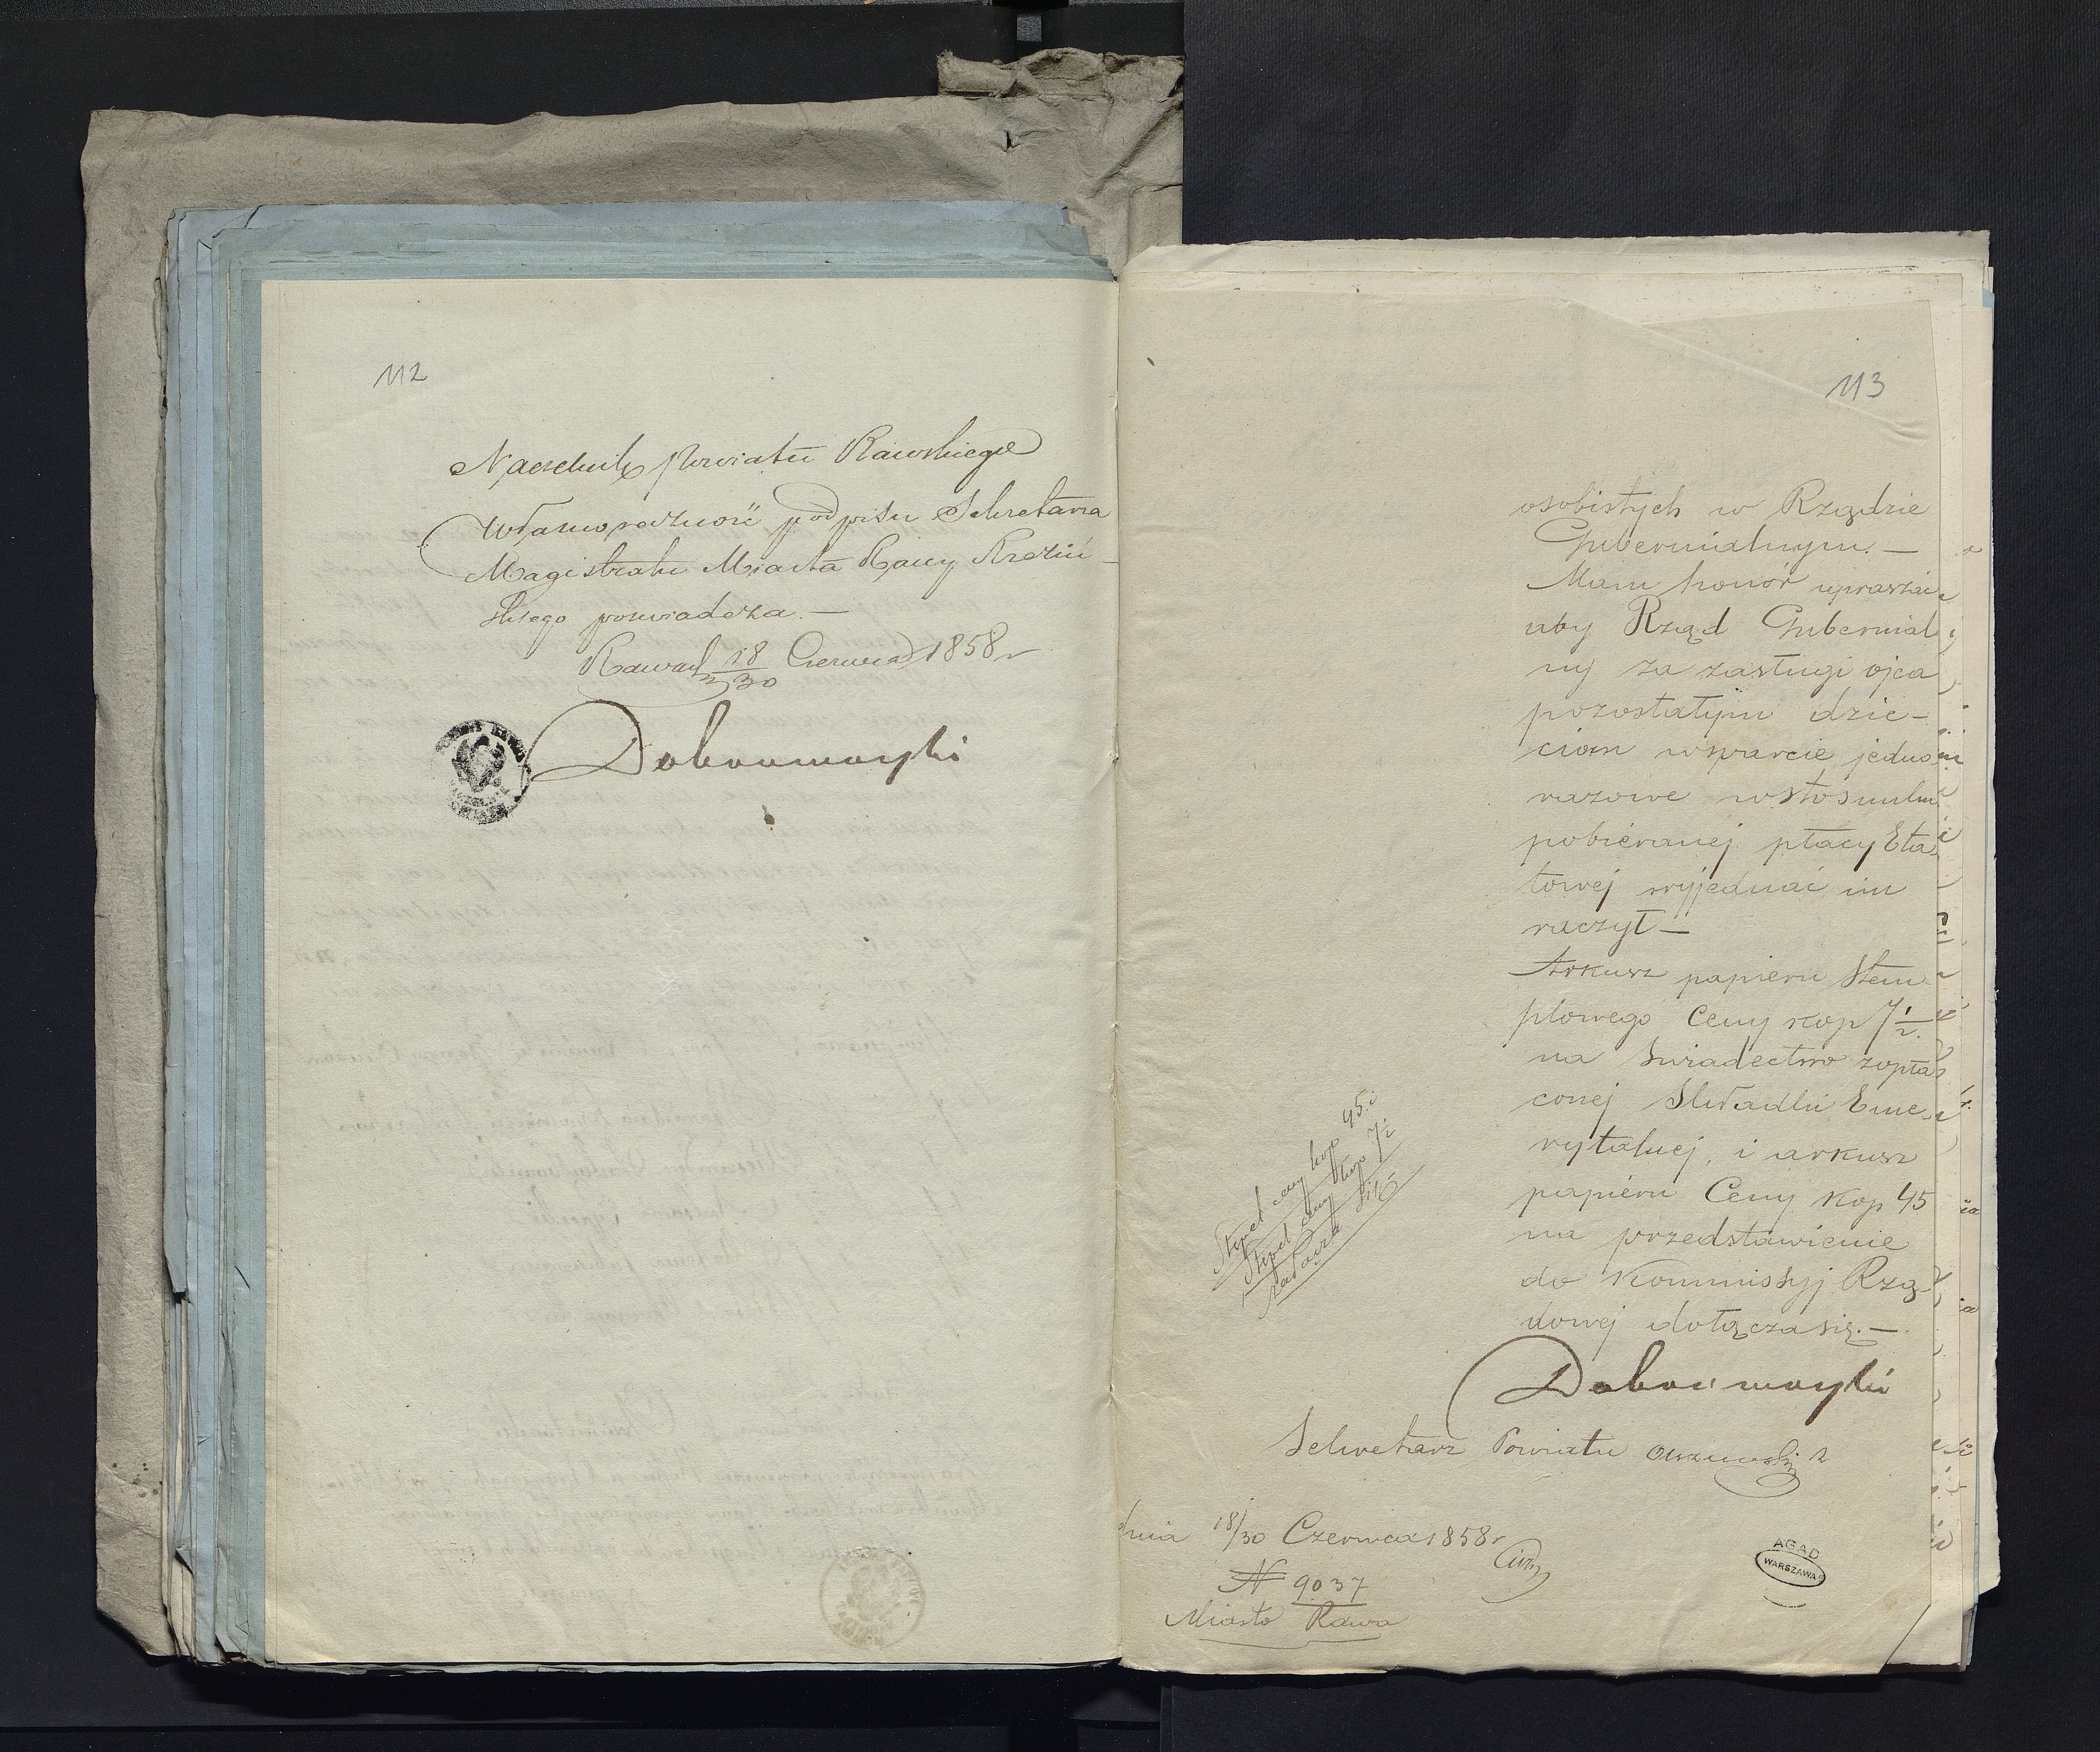 112
Naczelnik Powiatu Rawskiego
Własnoręczność podpisu Sekretarza
Magistratu Miasta Rawy Krziń
skiego poświadcza. —
Rawa d 18/30 Czerwca 1858 r
113
osobistych w Rządzie
Gubernialnym. —
Mam honor upraszać
aby Rząd Gubernial
ny za zasługi ojca
pozostałym dzie-
ciom wsparcie jedno
razowe w stosunku
pobiéranej płacy Eta
towej wyjednać im
raczył —
Arkusz papieru Stem
plowego Ceny kop 7 1/2.
na Swiadectwo zopła
conej Składki Eme
rytalnej, i arkusz
papieru Ceny Kop 45
na przedstawienie
do Kommissyj Rzą
dowej dołącza się. —
Stępel ceny kop 45. i
Stępel ceny kop 7 1/2
załącza się
Sekretarz Powiatu
dnia 18/30 Czerwca 1858 r
N 9037
Miasto Rawa
AGAD
WARSZAWA